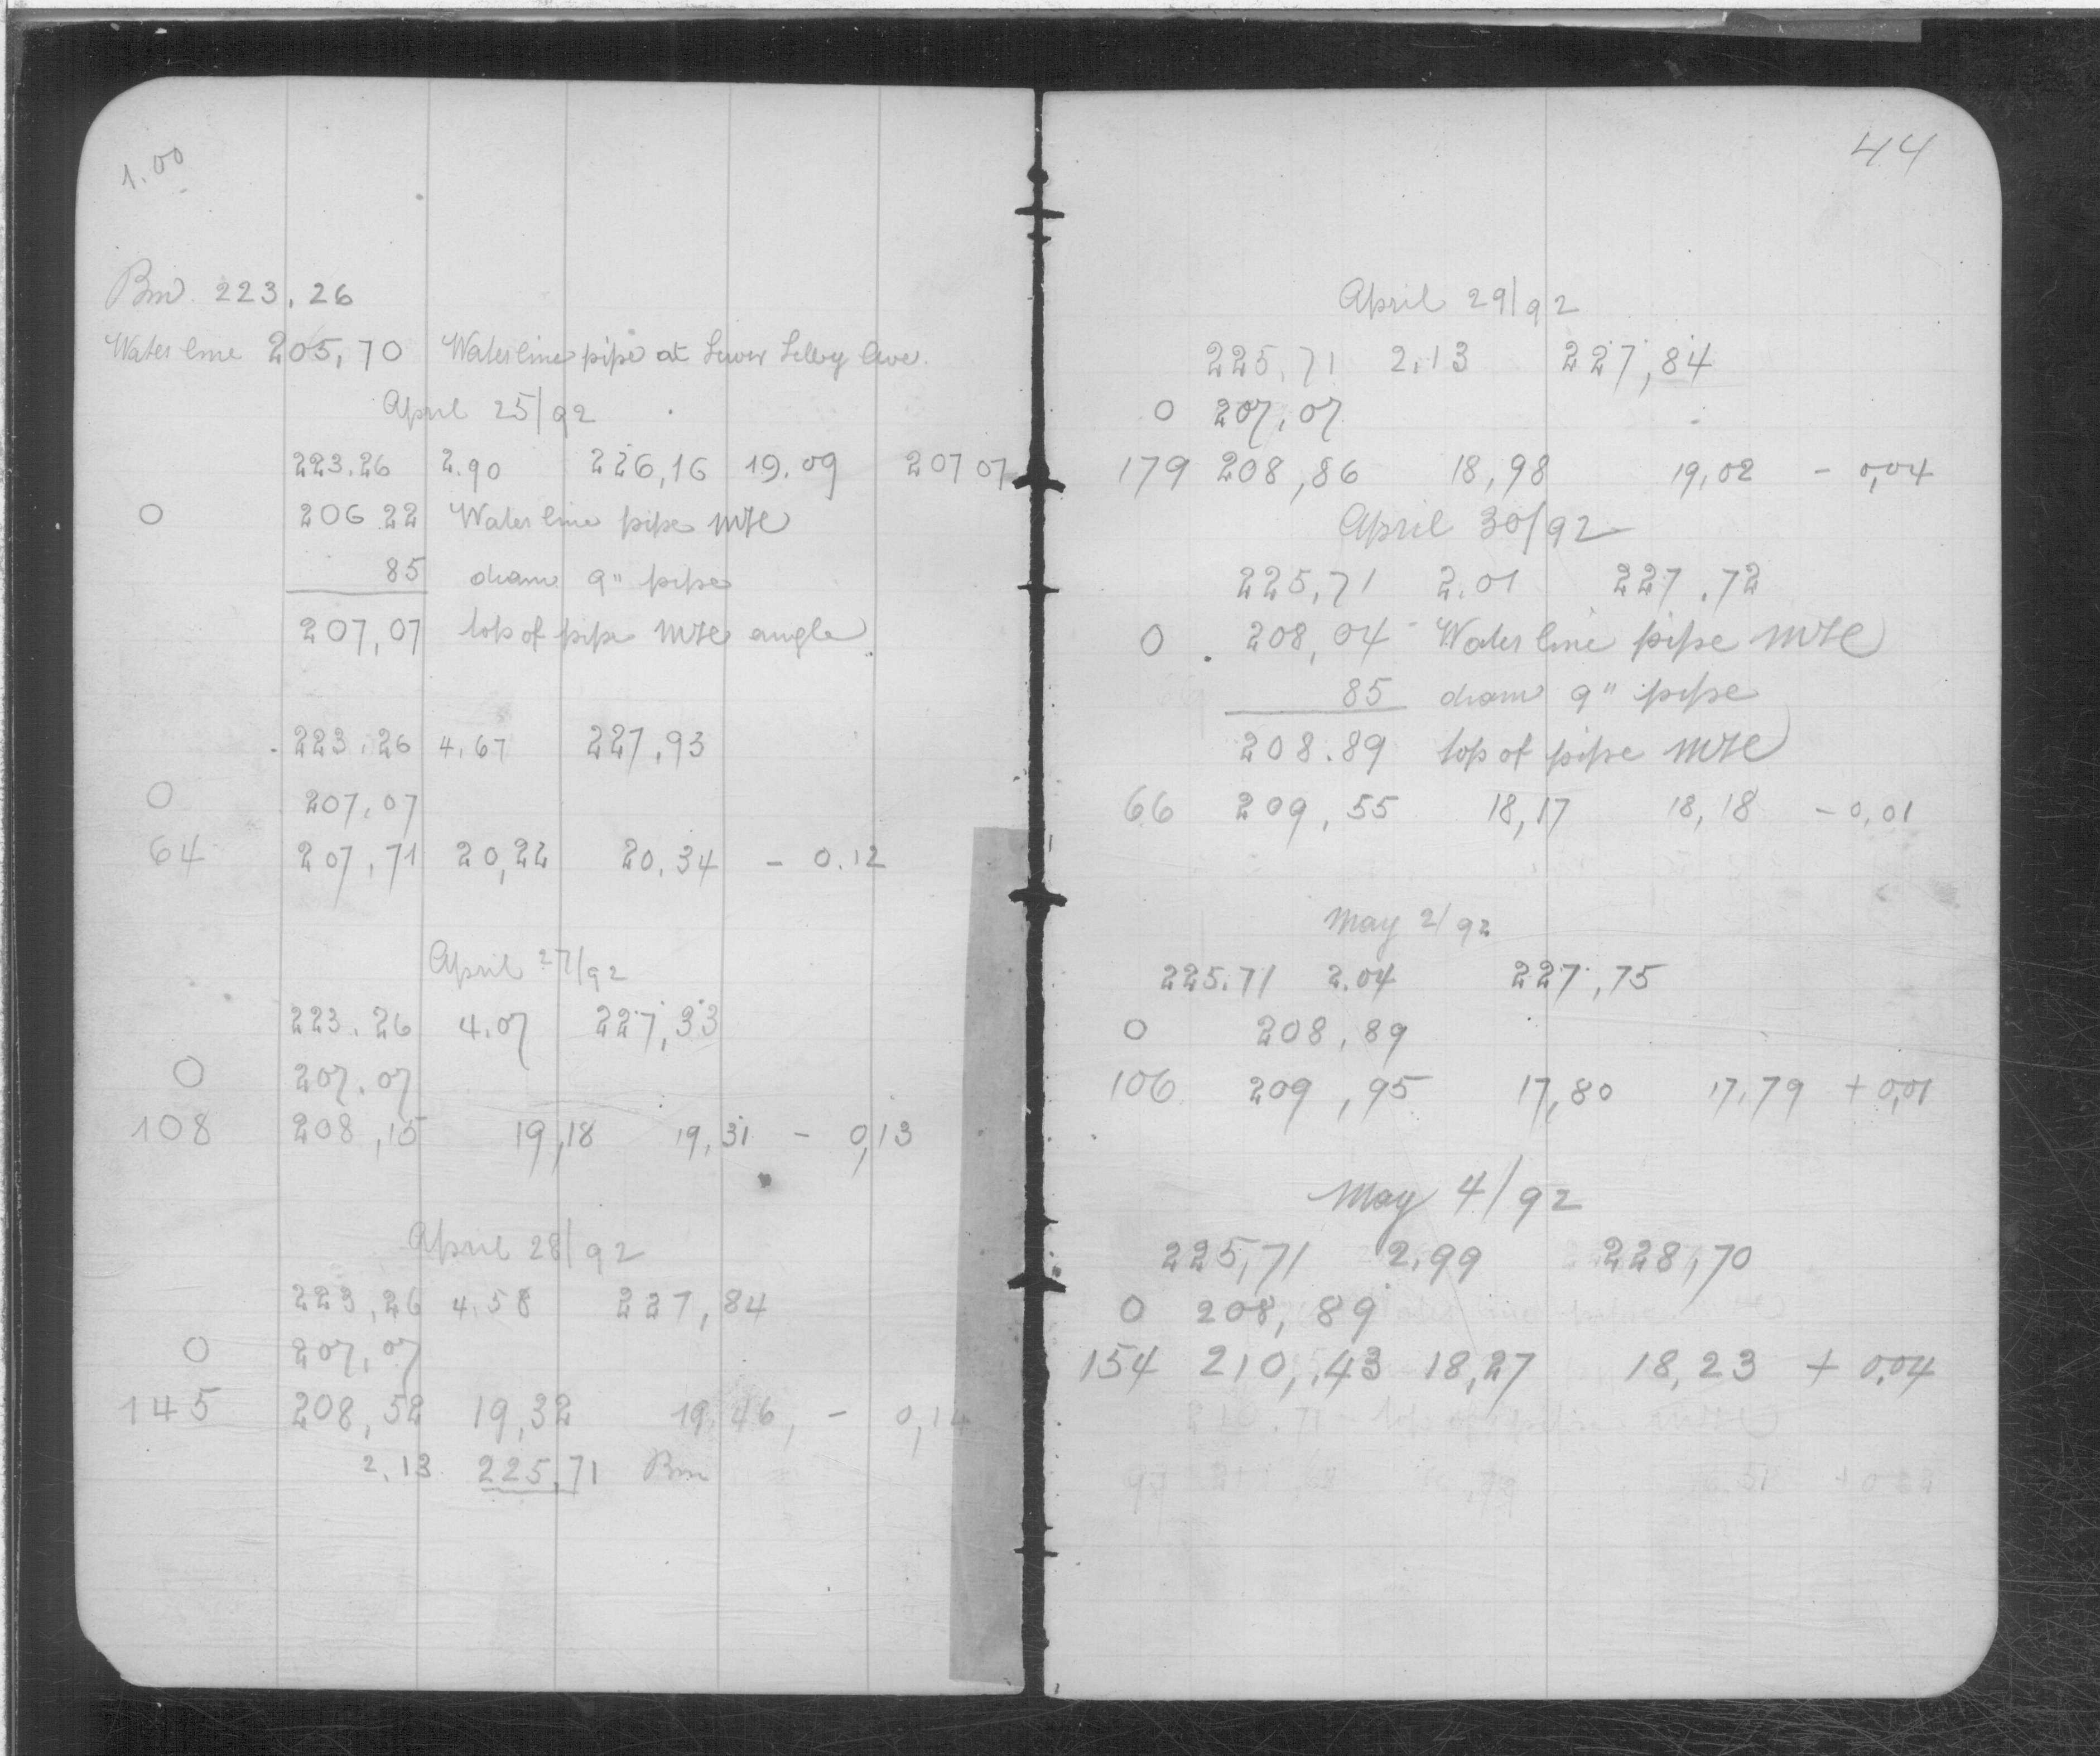 1.00
Bm. 223,26
Water line 205,70 Waterline pipe at Sewer Selby Ave.
April 25/92
223.26 2.90 226,16 19.09 207 07
0 206 22 Water line pipe MHE
85 diam 9" pipe
207,07 top of pipe MHE angle
223,26 4,67 227,93
0 207,07
64 207,71 20,22 20,34 - 0.12
April 27/92
223.26 4.07 227,33
0 207.07
108 208,15 19,18 19,31 - 0,13
April 28/92
223,26 4,58 227,84
0 207,07
145 208,52 19,32 19,46, - 0,14
2,13 225,71 Bm
44
April 29/92
225,71 2,13 227,84
0 207,07
179 208,86 18,98 19,02 - 0,04
April 30/92
225,71 2.01 227.72
0 208,04 Water line pipe MHE
85 diam 9" pipe
208.89 top of pipe MHE
66 209,55 18,17 18,18 - 0,01
May 2/92
225.71 2.04 227,75
0 208,89
106 209,95 17,80 17,79 + 0,01
May 4/92
225,71 2,99 228,70
0 208,89
154 210,43 18,27 18,23 + 0,04